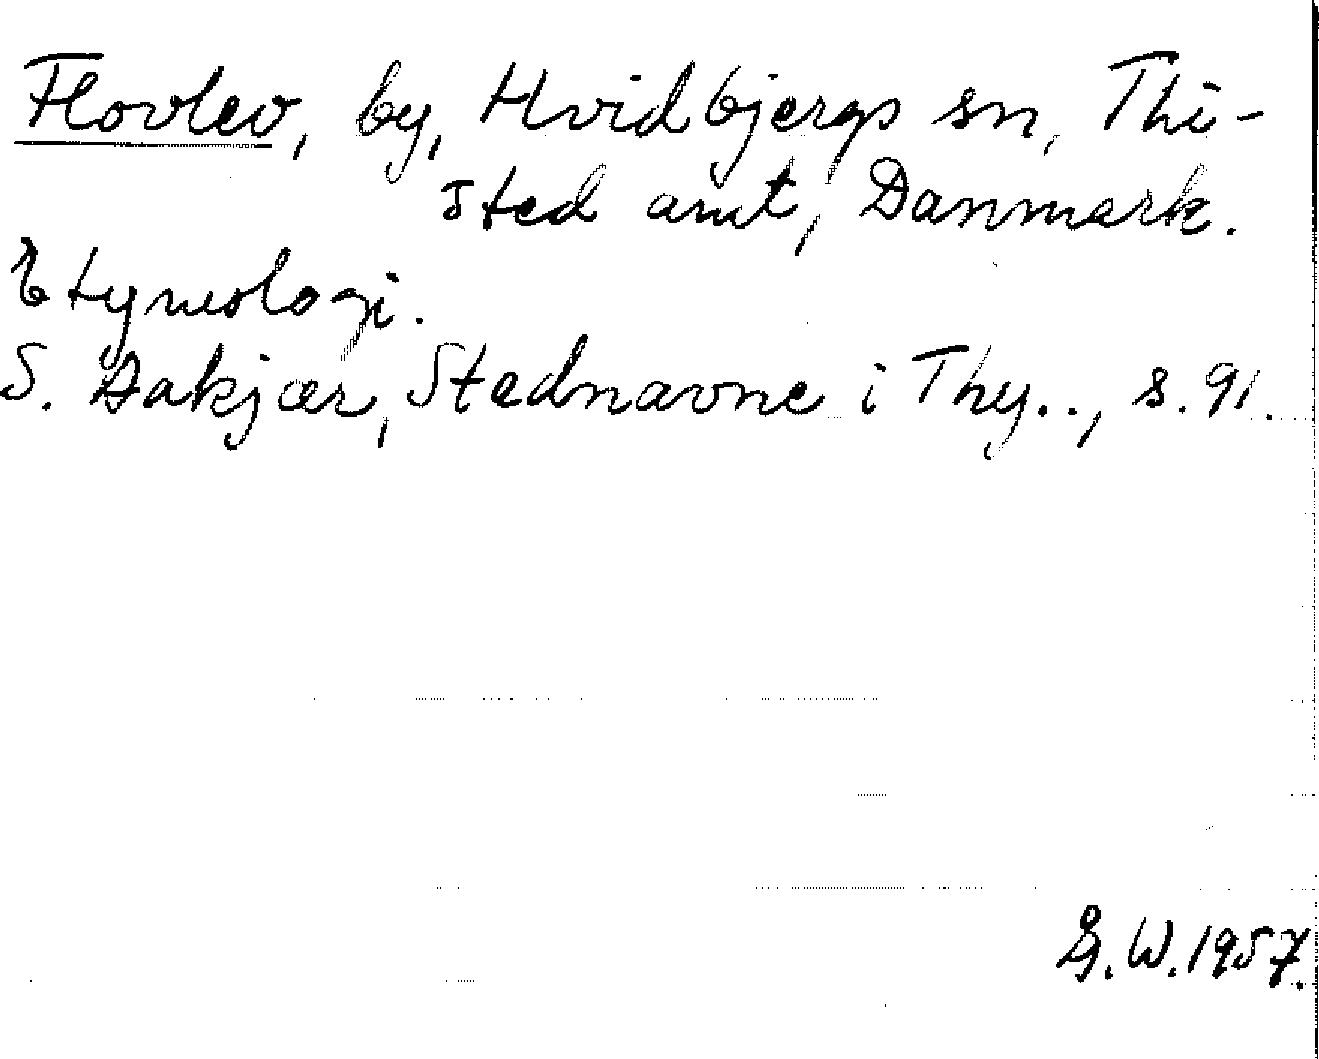 Flovlev, by, Hvidbjergs sn, Thi-
sted amt, Danmark.
Etymologi.
S. Aakjær, Stednavne i Thy.., s. 91.
G.W. 1957.